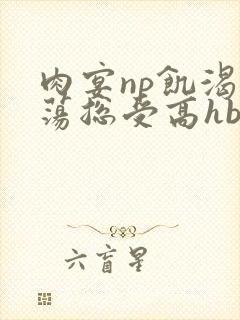 肉宴np飢渴
蕩総受高hb
六盲星